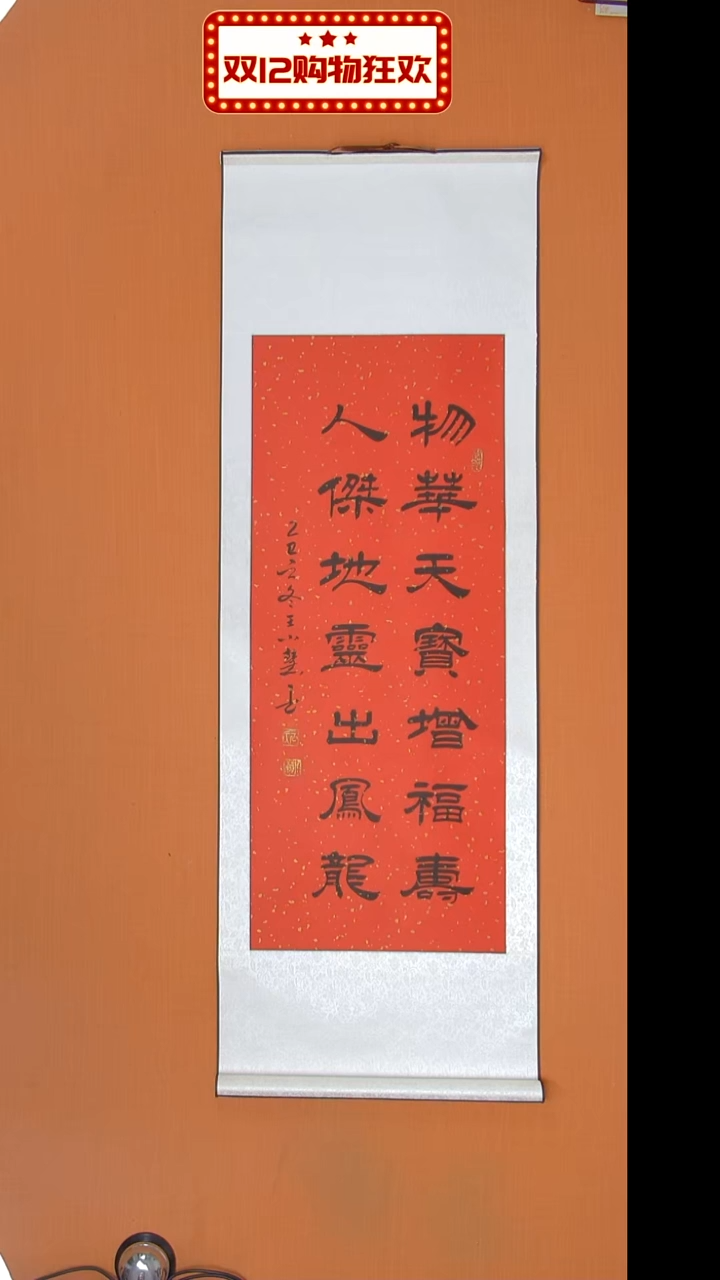 双12购物狂欢
物華天寶增福壽
人傑地靈出鳳龍
乙巳立冬王小燕書